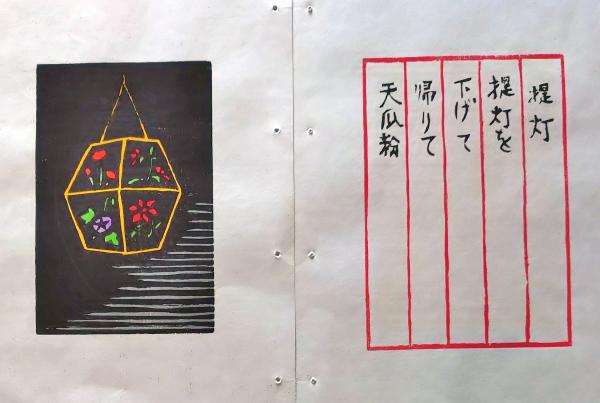 提灯
提灯を
下げて
帰りて
天瓜粉